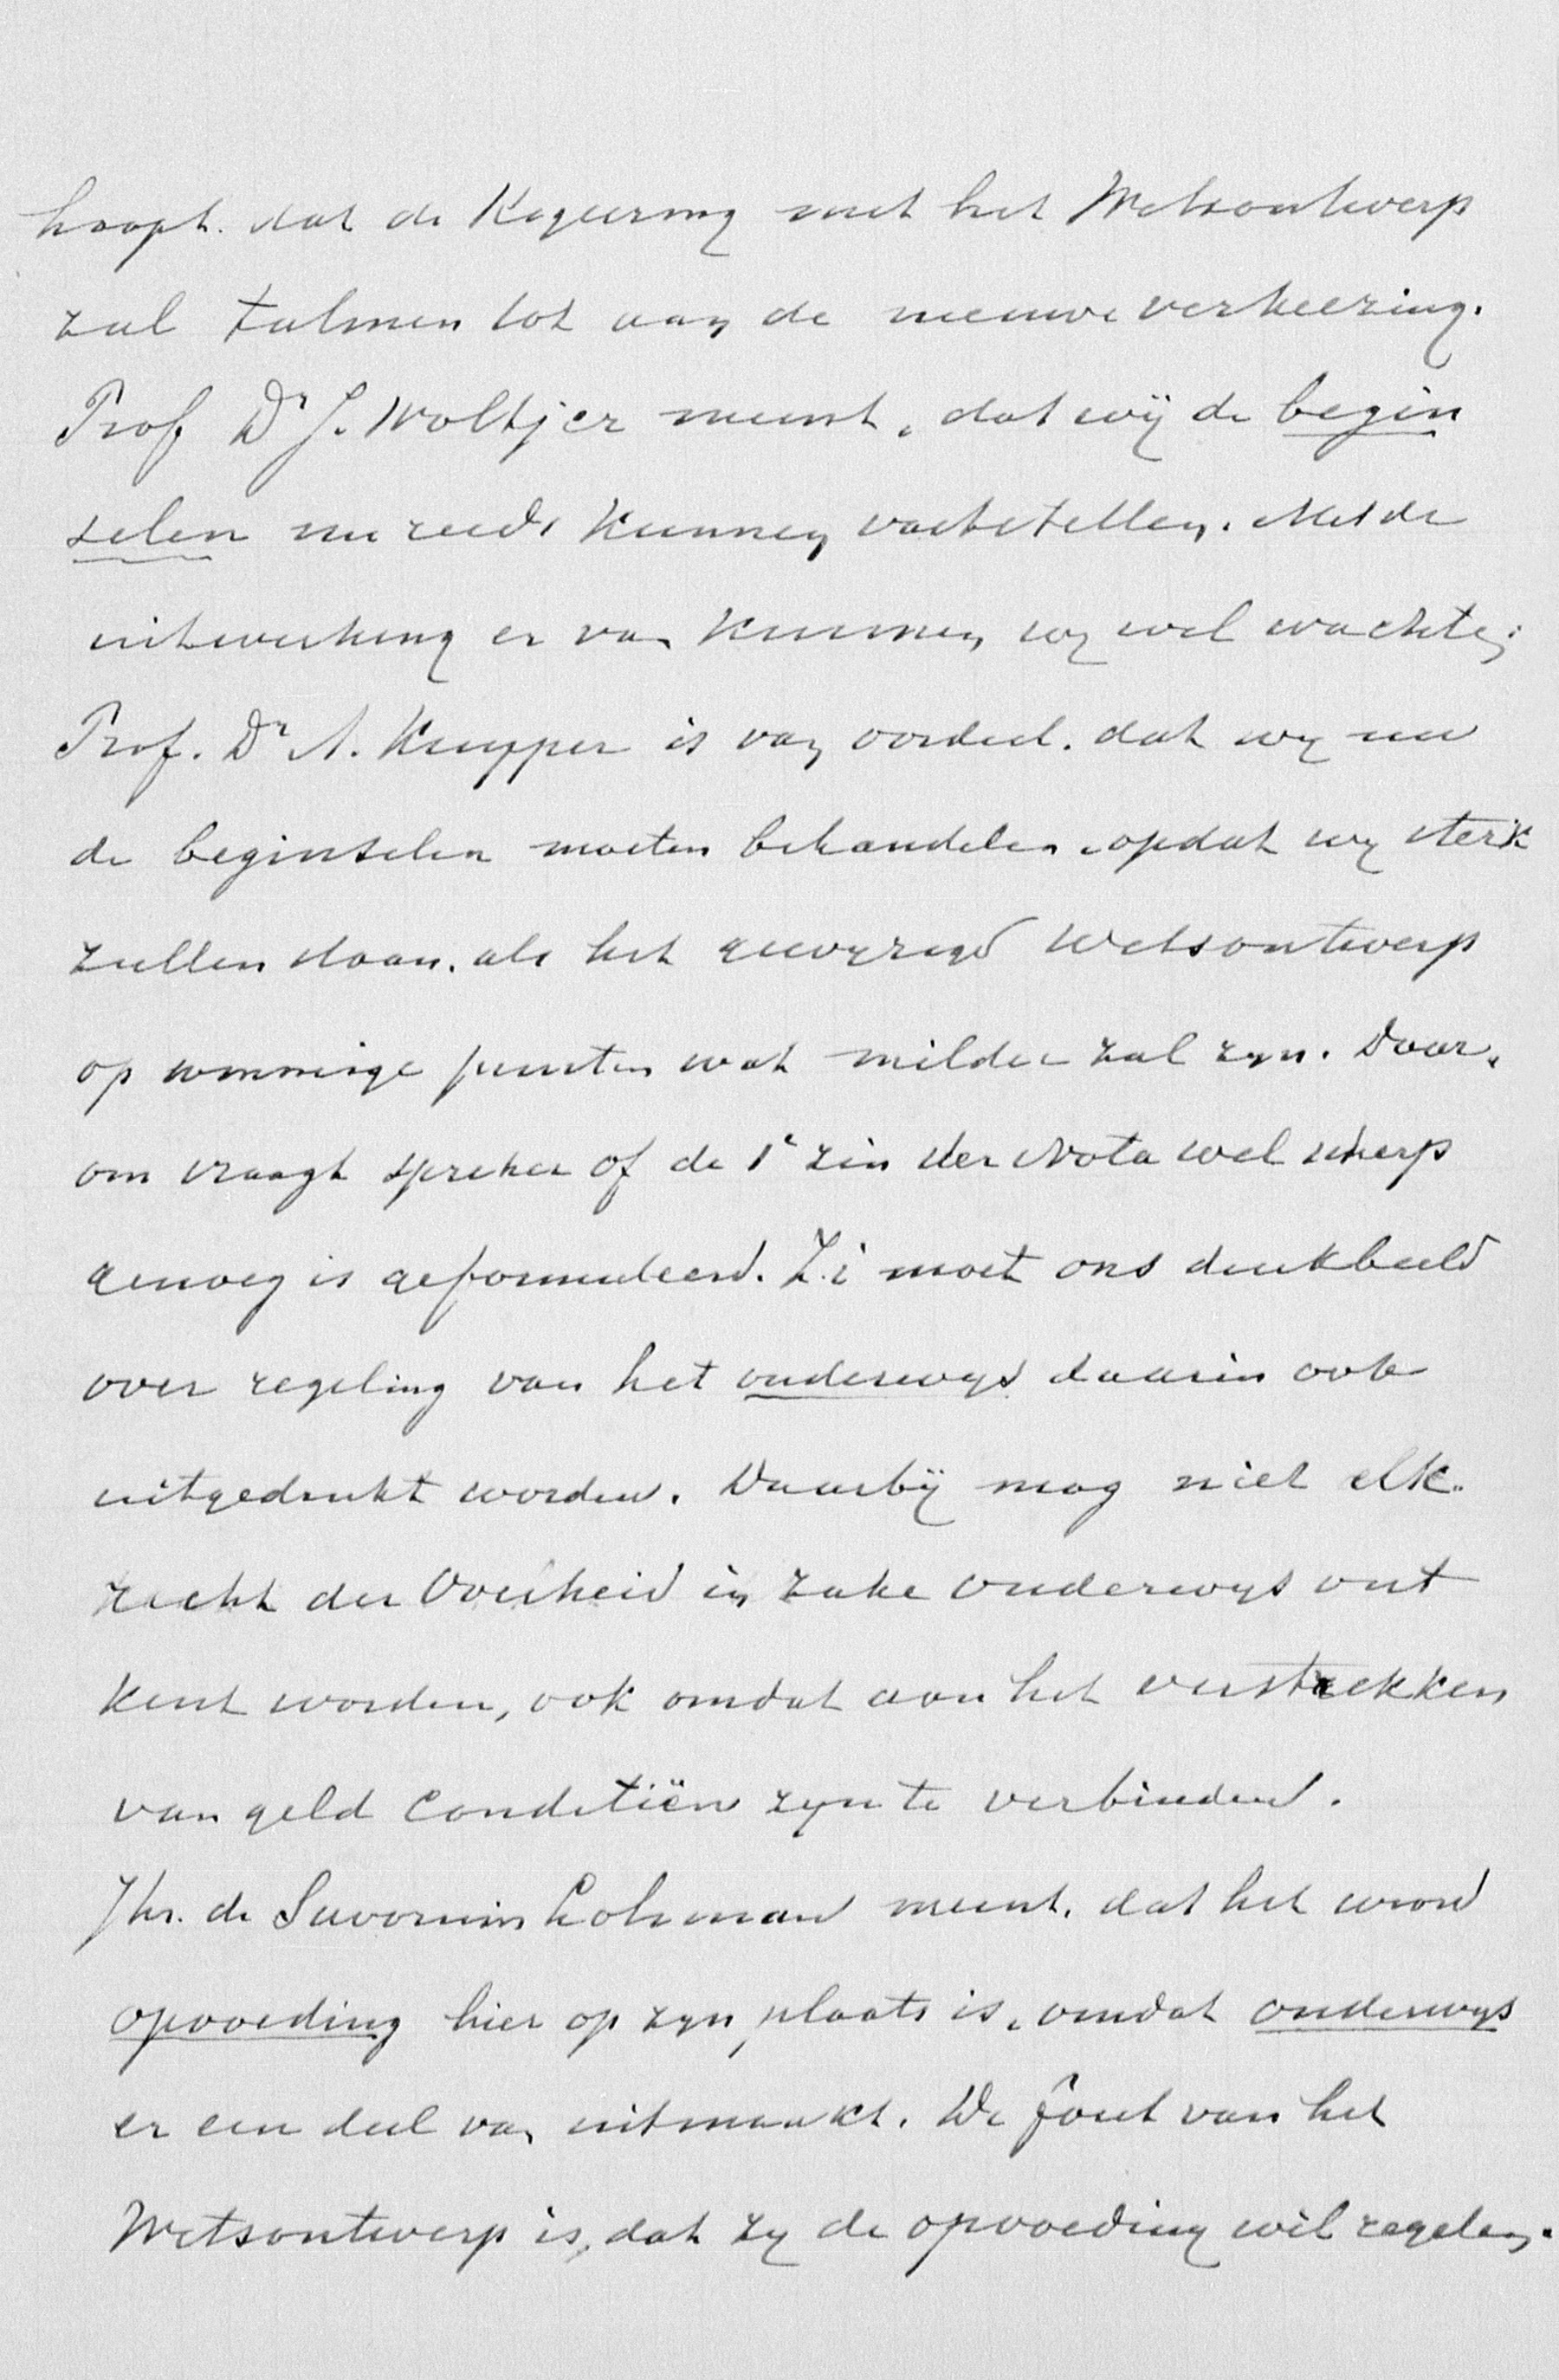 hoopt. dat de Regeering met het Wetsontwerp
zal talmen tot aan de nieuwe verkeezing.
Prof Dr J. Woltjer meent, dat wij de begin
selen nu reeds kunnen vaststellen. Met de
uitwerking er van kunnen wy wel wachten;
Prof. Dr A. Kuyper is van oordeel. dat wy nu
de beginselen moeten behandelen, opdat wy sterk
zullen staan. als het gewyzigd Wetsontwerp
op sommige punten wat milder zal zyn. Daar-
om vraagt spreker of de 1e zin der Nota wel scherp
genoeg is geformuleerd. Z.i moet ons denkbeeld
over regeling van het onderwys daarin ook
uitgedrukt worden. Daarbij mag niet elk
recht der Overheid in zake onderwys ont
kent worden, ook omdat aan het verstrekken
van geld conditiën zyn te verbinden.
Jhr. de Savornin Lohman meent. dat het woord
opvoeding hier op zyn plaats is, omdat onderwys
er een deel van uitmaakt. De fout van het
Wetsontwerp is, dat zy de opvoeding wil regelen.